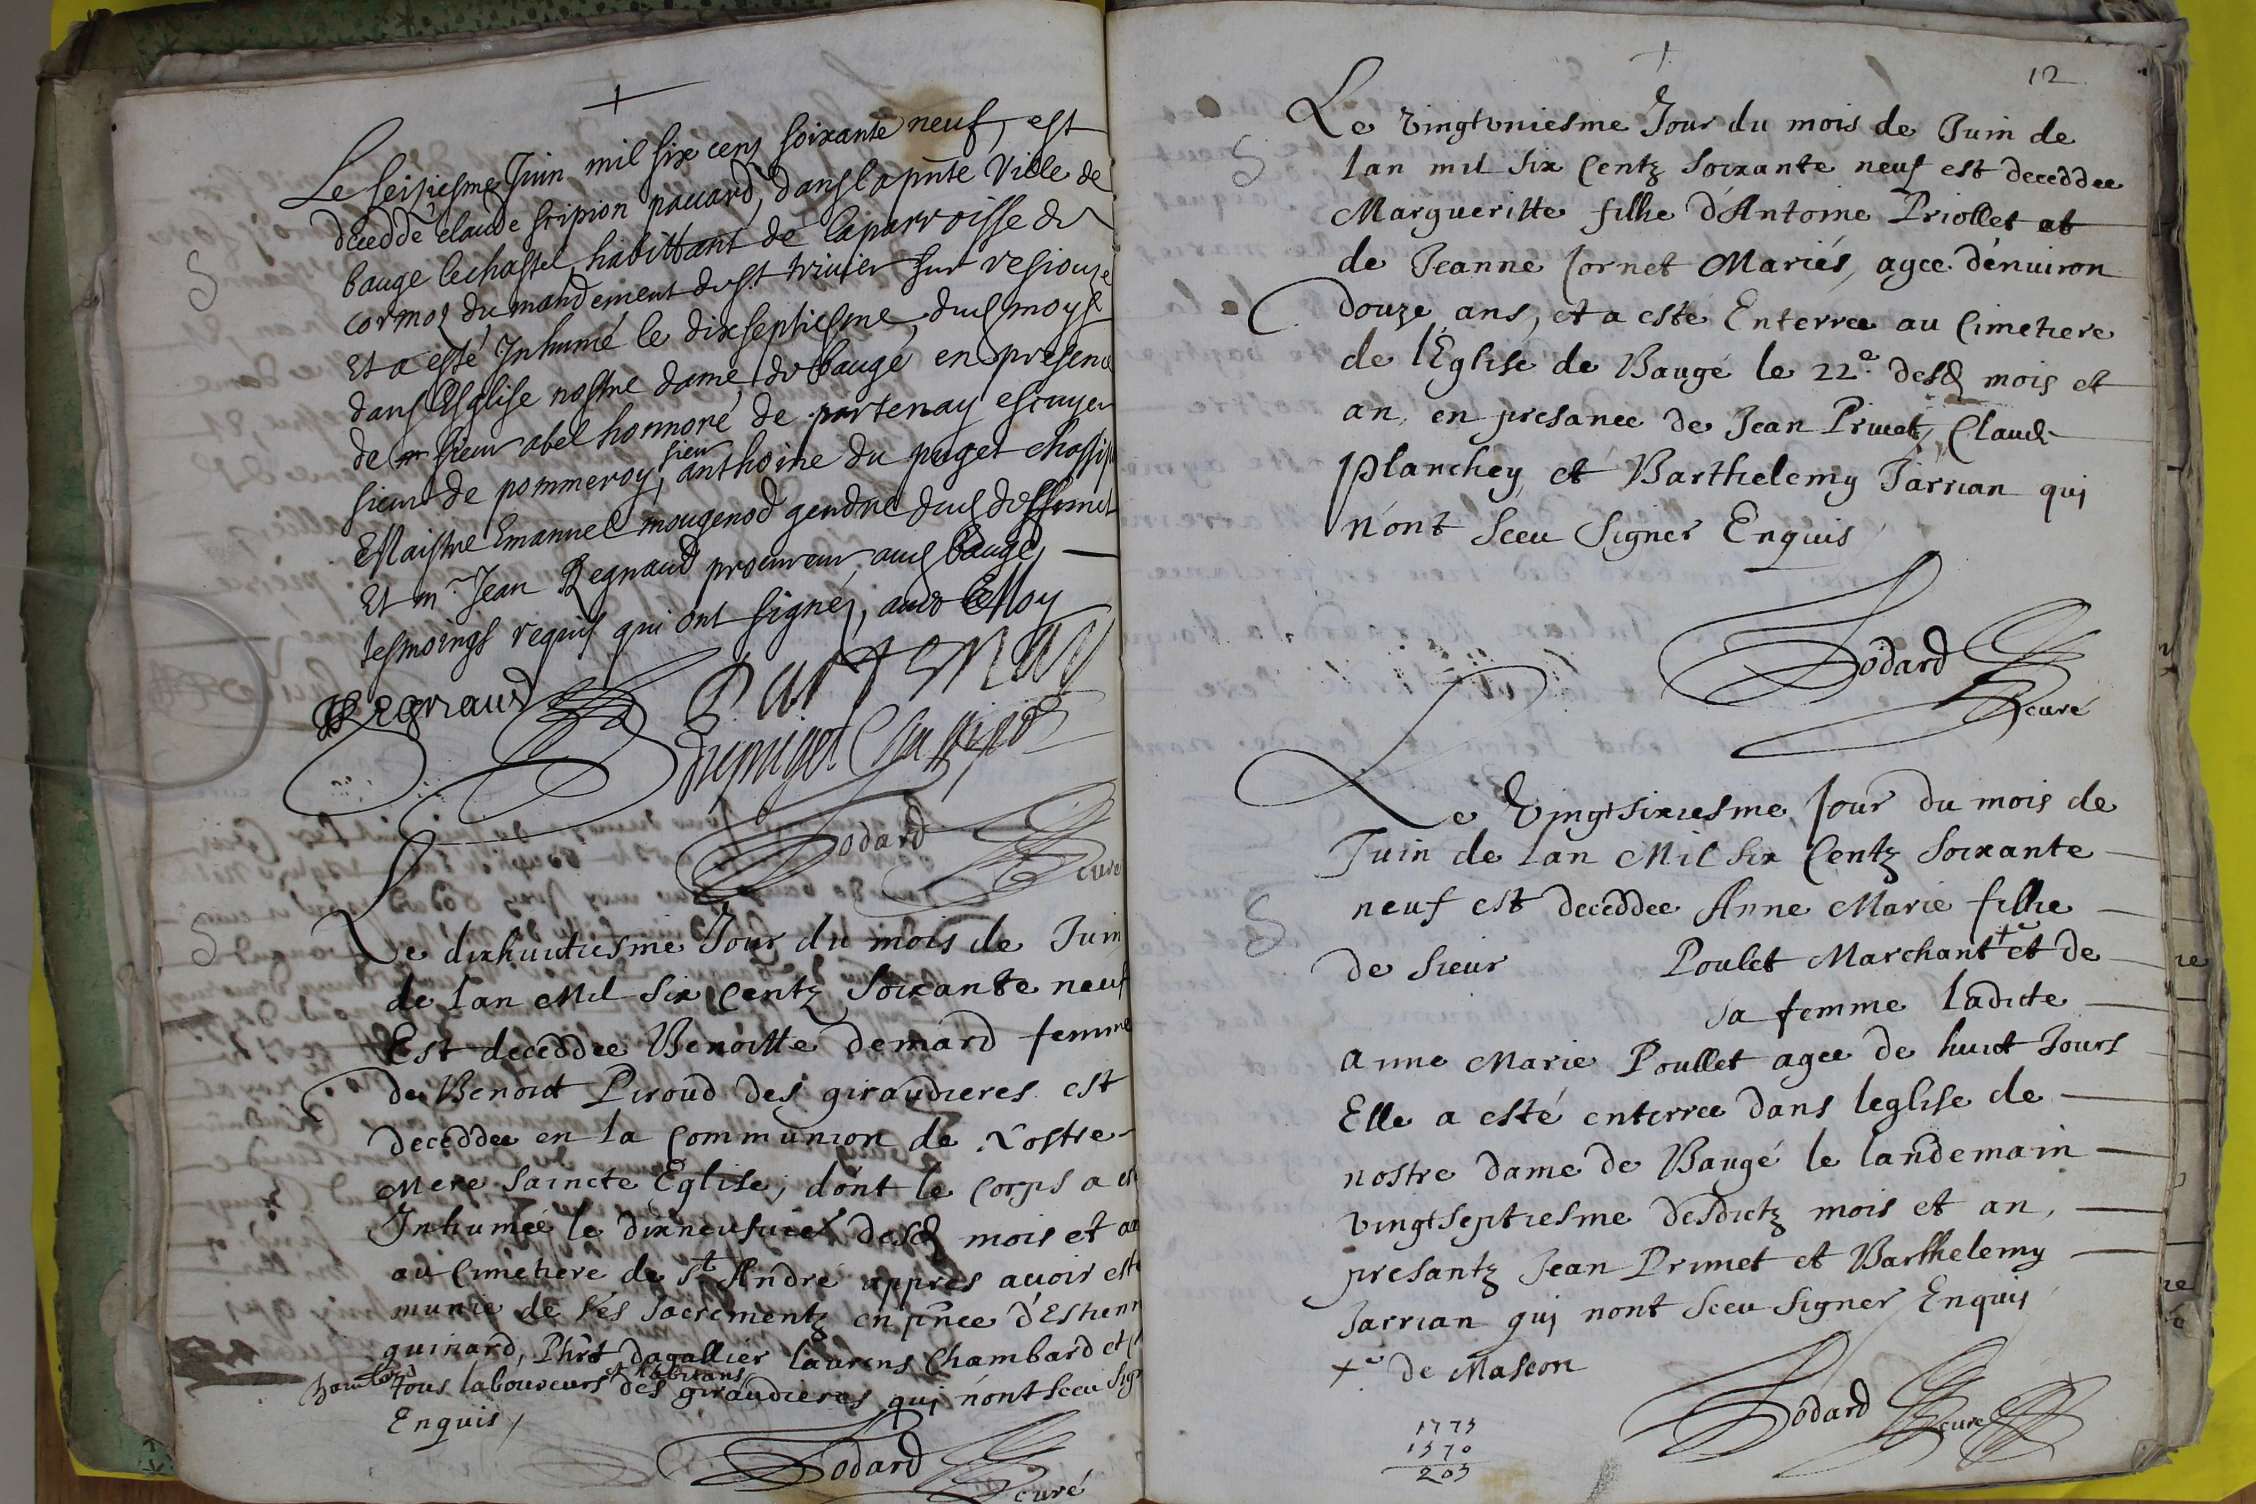 Le seiziesme Juin mil six cens soixante neuf, est
decedde claude scipion pauard, dans la pnte Ville de
bauge lechastel habittant de la parroisse de
cormoz du mandement du st triuier sur resiouze
Et a esté Inhumé le dixseptiesme dud moys
dans l'Esglise nostre dame de baugé en presence
de sieur abel honnoré de partenay escuyer
sieur de pommeroy, sieur anthoine du puget
Maistre Emanuel mougenod gendre dud deffunct
Et mr Jean Regnaud procureur aud baugé
tesmoings requis qui ont signéz, auec Moy
Regnaud
Partenay
dupuget
Godard
curé
Le dixhuitiesme Jour du mois de Juin
de lan Mil Six Centz Soixante neuf
Est deceddee Benoitte demard femme
de Benoict Piroud des giraudieres est
deceddee en la Communion de Nostre
Mere Saincte Eglise, dont le Corps a
Inhumée le dixneufuie desd mois et an
au Cimetiere de St André appres auoir esté
munie de ses Sacrementz en pnce d'Estienne
guinard, Phrt dagallier laurens Chambard et
tous laboureurs et habitans des giraudieres qui n'ont sceu Sig
Enquis,
Godard
curé
12
Le vingtvniesme Jour du mois de Juin de
lan mil six Centz Soixante neuf est deceddee
Margueritte filhe d'Antoine Priollet et
de Jeanne Jornet Mariés, agee d'enuiron
douze ans, et a esté Enterree au Cimetiere
de l'Eglise de Baugé le 22e desd mois et
an, en presance de Jean Primet, Claude
Planchey et Barthelemy Jarrian qui
n'ont Sceu Signer Enquis
Godard
curé
Le Vingtsixiesme Jour du mois de
Juin de lan Mil Six Centz Soixante
neuf est deceddee Anne Marie filhe
de Sieur Poulet Marchant + et de
Sa femme ladicte
Anne Marie Poullet agee de huict Jours
Elle a esté enterree dans leglise de
nostre dame de Baugé le landemain
vingtseptiesme desdictz mois et an,
presantz Jean Primet et Barthelemy
Jarrian qui nont Sceu Signer Enquis
+ de Mascon
Godard curé
1773
1570
203